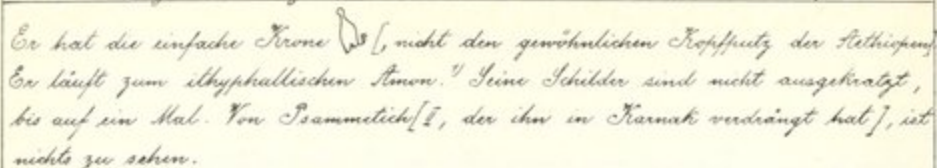 Er hat die einfache Krone [, nicht den gewöhnlichen Kopfputz der Aethiopen]
Er läuft zum ithyphallischen Amon.¹⁾ Seine Schilder sind nicht ausgekratzt,
bis auf ein Mal. Von Psammetich [II, der ihn in Karnak verdrängt hat], ist
nichts zu sehen.